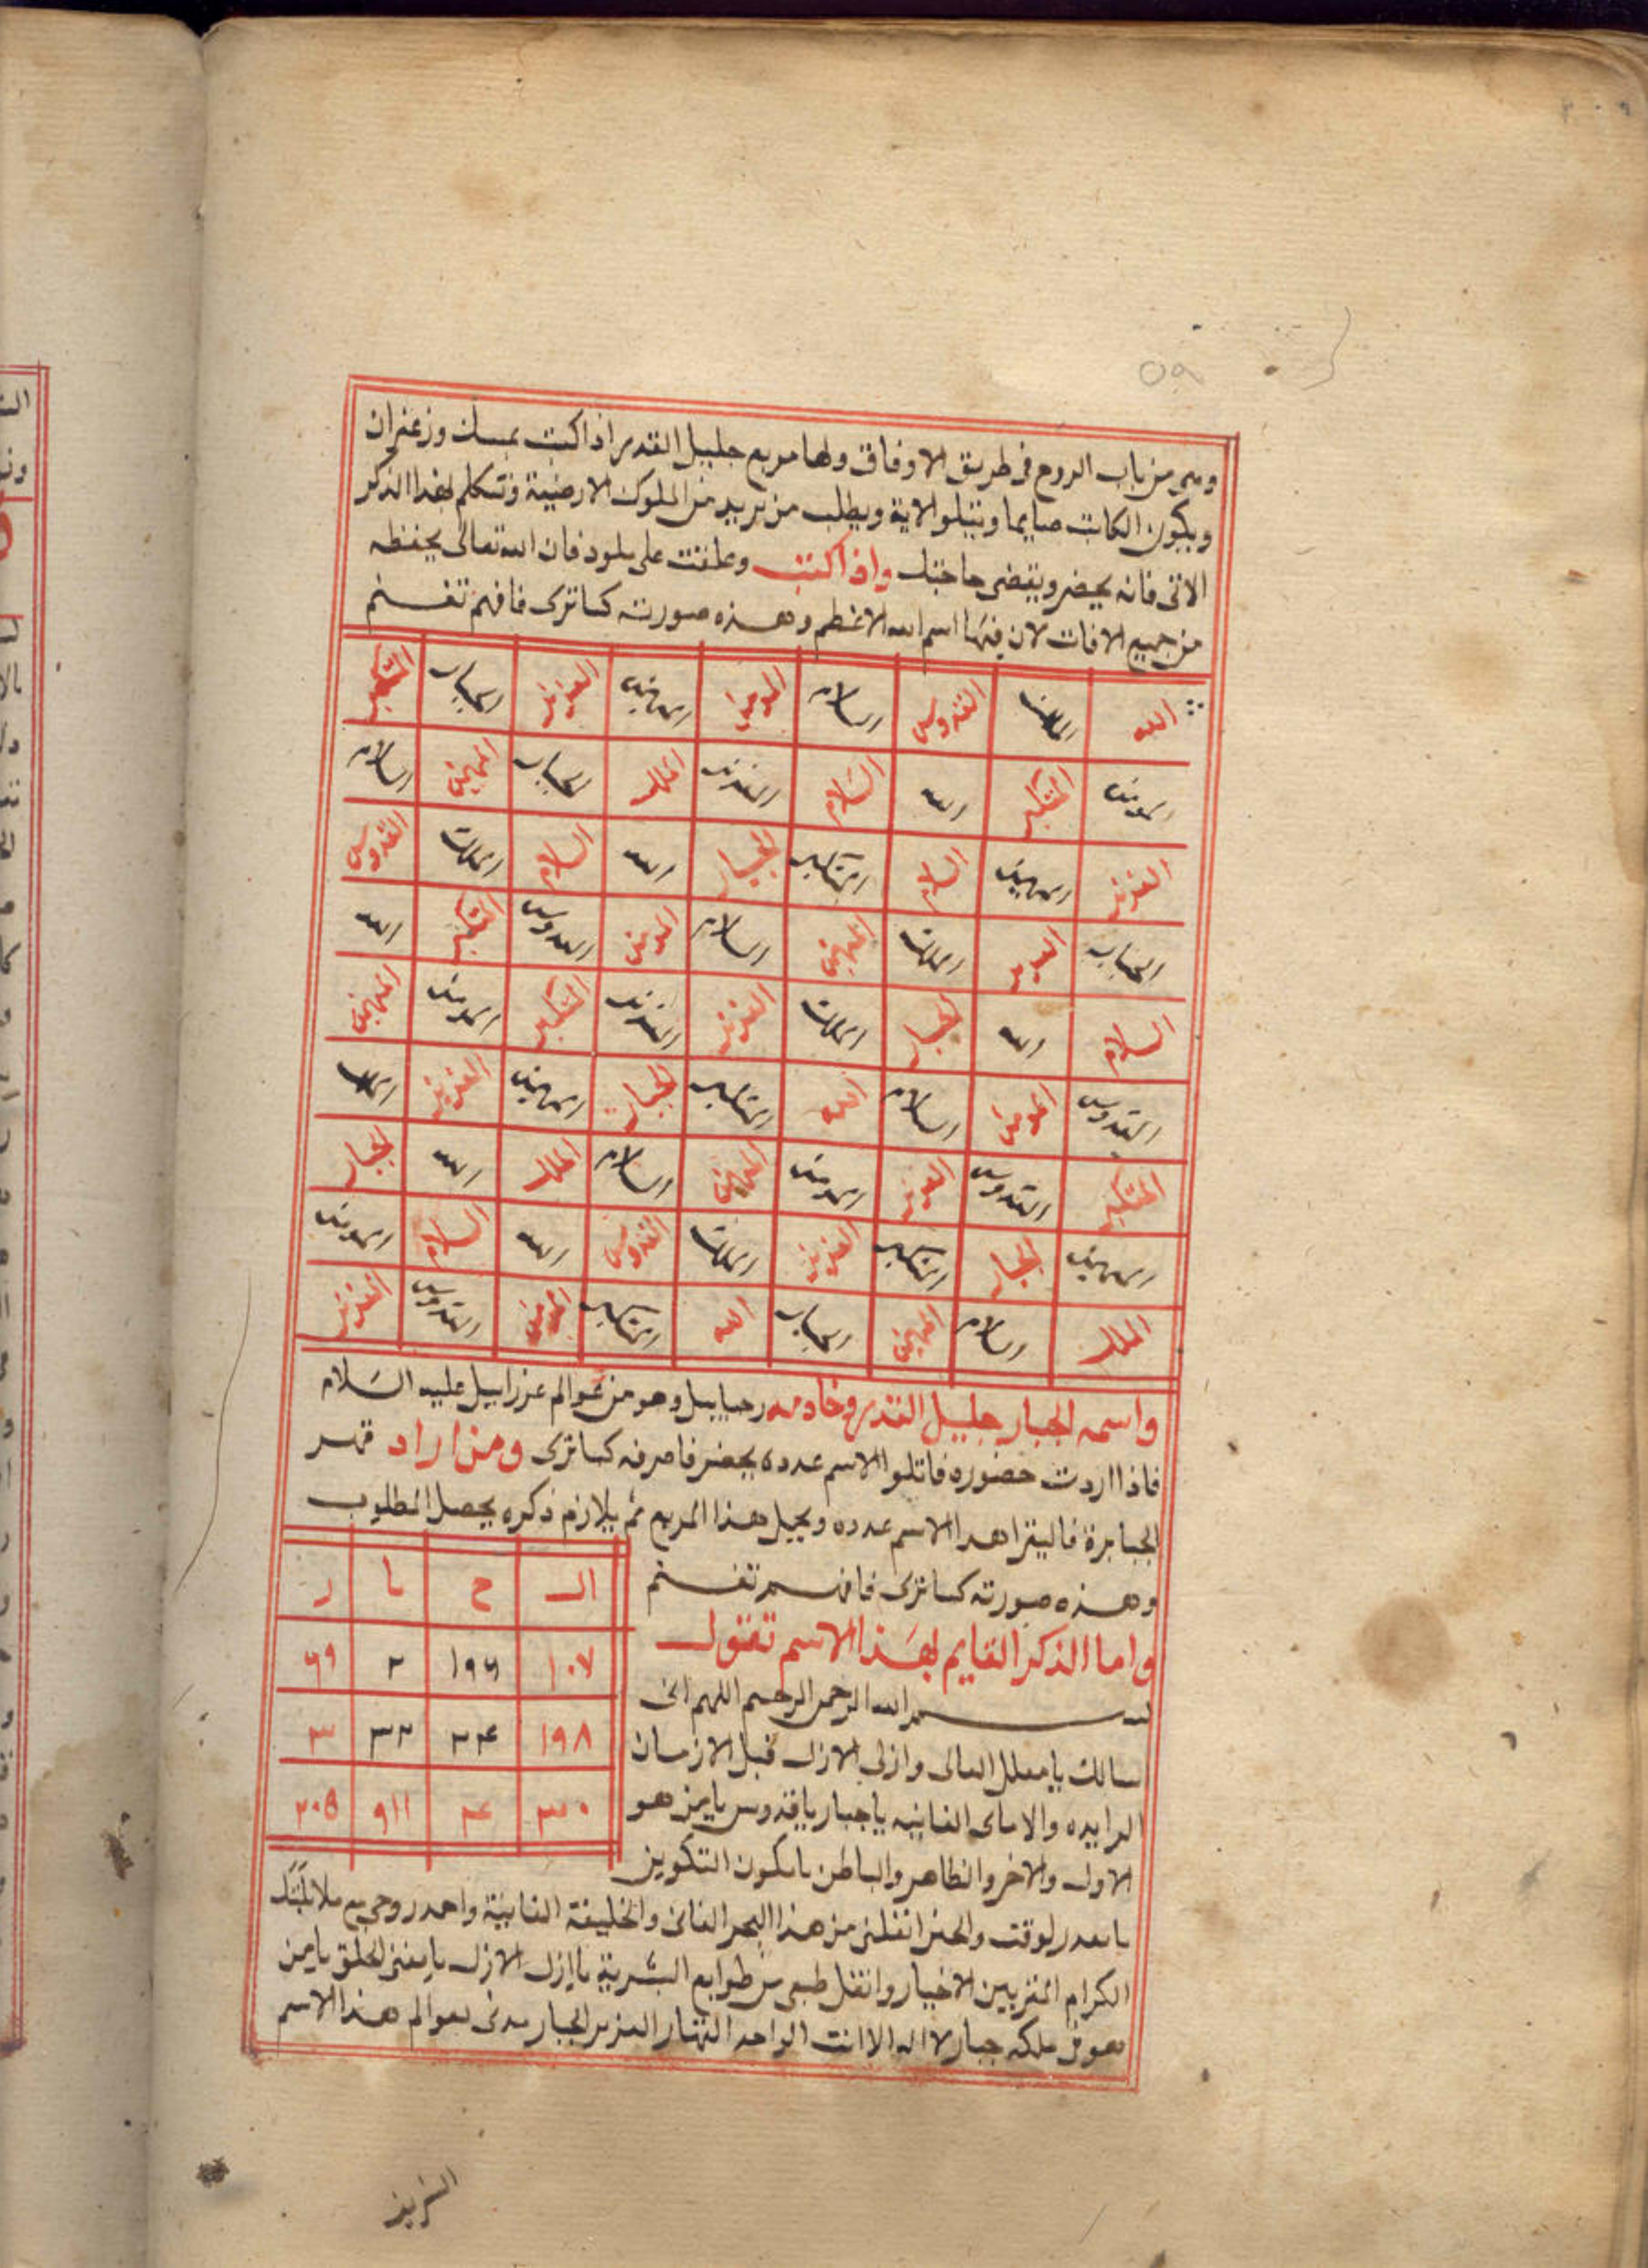 وهى من باب الروح فى طريق الاوفاق ولها مربع جليل القدر اذا كتبت بمسك وزعفران
ويكون الكاتب صايما ويتلوا الاية ويطلب من يريد من الملوك الارضية وتتكلم لهذا الذكر
الاتى فانه يحضر ويقضى حاجتك واذا كتبت وعلقت على مولود فان الله تعالى يحفظه
من جميع الافات لان فيها اسم الله الاعظم وهذه صورته كما ترى فافهم تغنم
الله الملك القدوس السلام المومن المهيمن العزيز الجبار المتكبر
المومن المتكبر الله السلام العزيز الملك الجبار المهيمن السلام
العزيز المهيمن السلام المتكبر الجبار الله السلام الملك القدوس
الجبار العزيز الملك المهيمن السلام المومن القدوس المتكبر الله
السلام الله الجبار الملك العزيز العزيز المتكبر المومن المهيمن
القدوس المومن السلام الله المتكبر الجبار المهيمن العزيز الملك
المتكبر القدوس العزيز المومن المهيمن السلام الملك الله الجبار
المهيمن الجبار المتكبر العزيز الملك القدوس الله السلام المومن
الملك السلام المهيمن الجبار الله المتكبر المومن القدوس العزيز
واسمه الجبار جليل القدر وخادمه رحياييل وهو من عوالم عزراييل عليه السلام
فاذا اردت حضوره فاتلوا الاسم عدده يحضر فاصرفه كما ترى ومن اراد قهر
الجبابرة فاليقرا هذا الاسم عدده ويحمل هذا المربع ثم يلازم ذكره يحصل المطلوب
وهذه صورته كما ترى فافهم تغنم
الـ ج با ر
١٠٧ ١٩٦ ٢ ٦٩
١٩٨ ٢٤ ٣٢ ٣
٣٠ ٤ ٩١١ ٢٠٥
واما الذكر القايم بهذا الاسم تقول
بسم الله الرحمن الرحيم اللهم انى
اسالك يا معلل العالى وازلى الازل قبل الازمان
والاماكن الفانيه يا جبار يا قدوس يا من هو
الاول والاخر والظاهر والباطن يا مكون التكوين
الوقت انقلنى من هذا البحر الفانى والخليفة الفانية روحى مع ملائكتك
الكرام المقربين الاخيار وانقل طبعى من طوابع البشرية يا ازل الازل يا مفنى الخلق يا من
هو فى ملكه جبار لا اله الا انت الواحد القهار العزيز الجبار مدنى بعوالم هذا الاسم
الشريف
٥٩